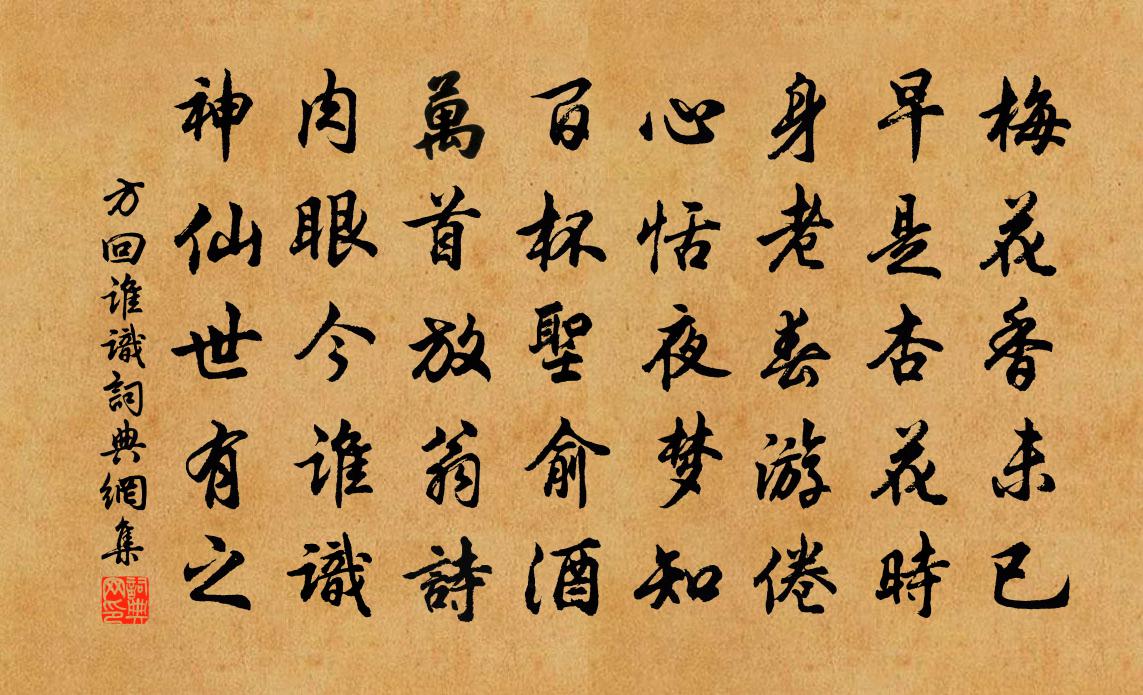 梅花香未已
早是杏花時
身老春游倦
心恬夜梦知
百杯聖俞酒
萬首放翁詩
肉眼今谁識
神仙世有之
方回谁識詞典網集
詞典网印